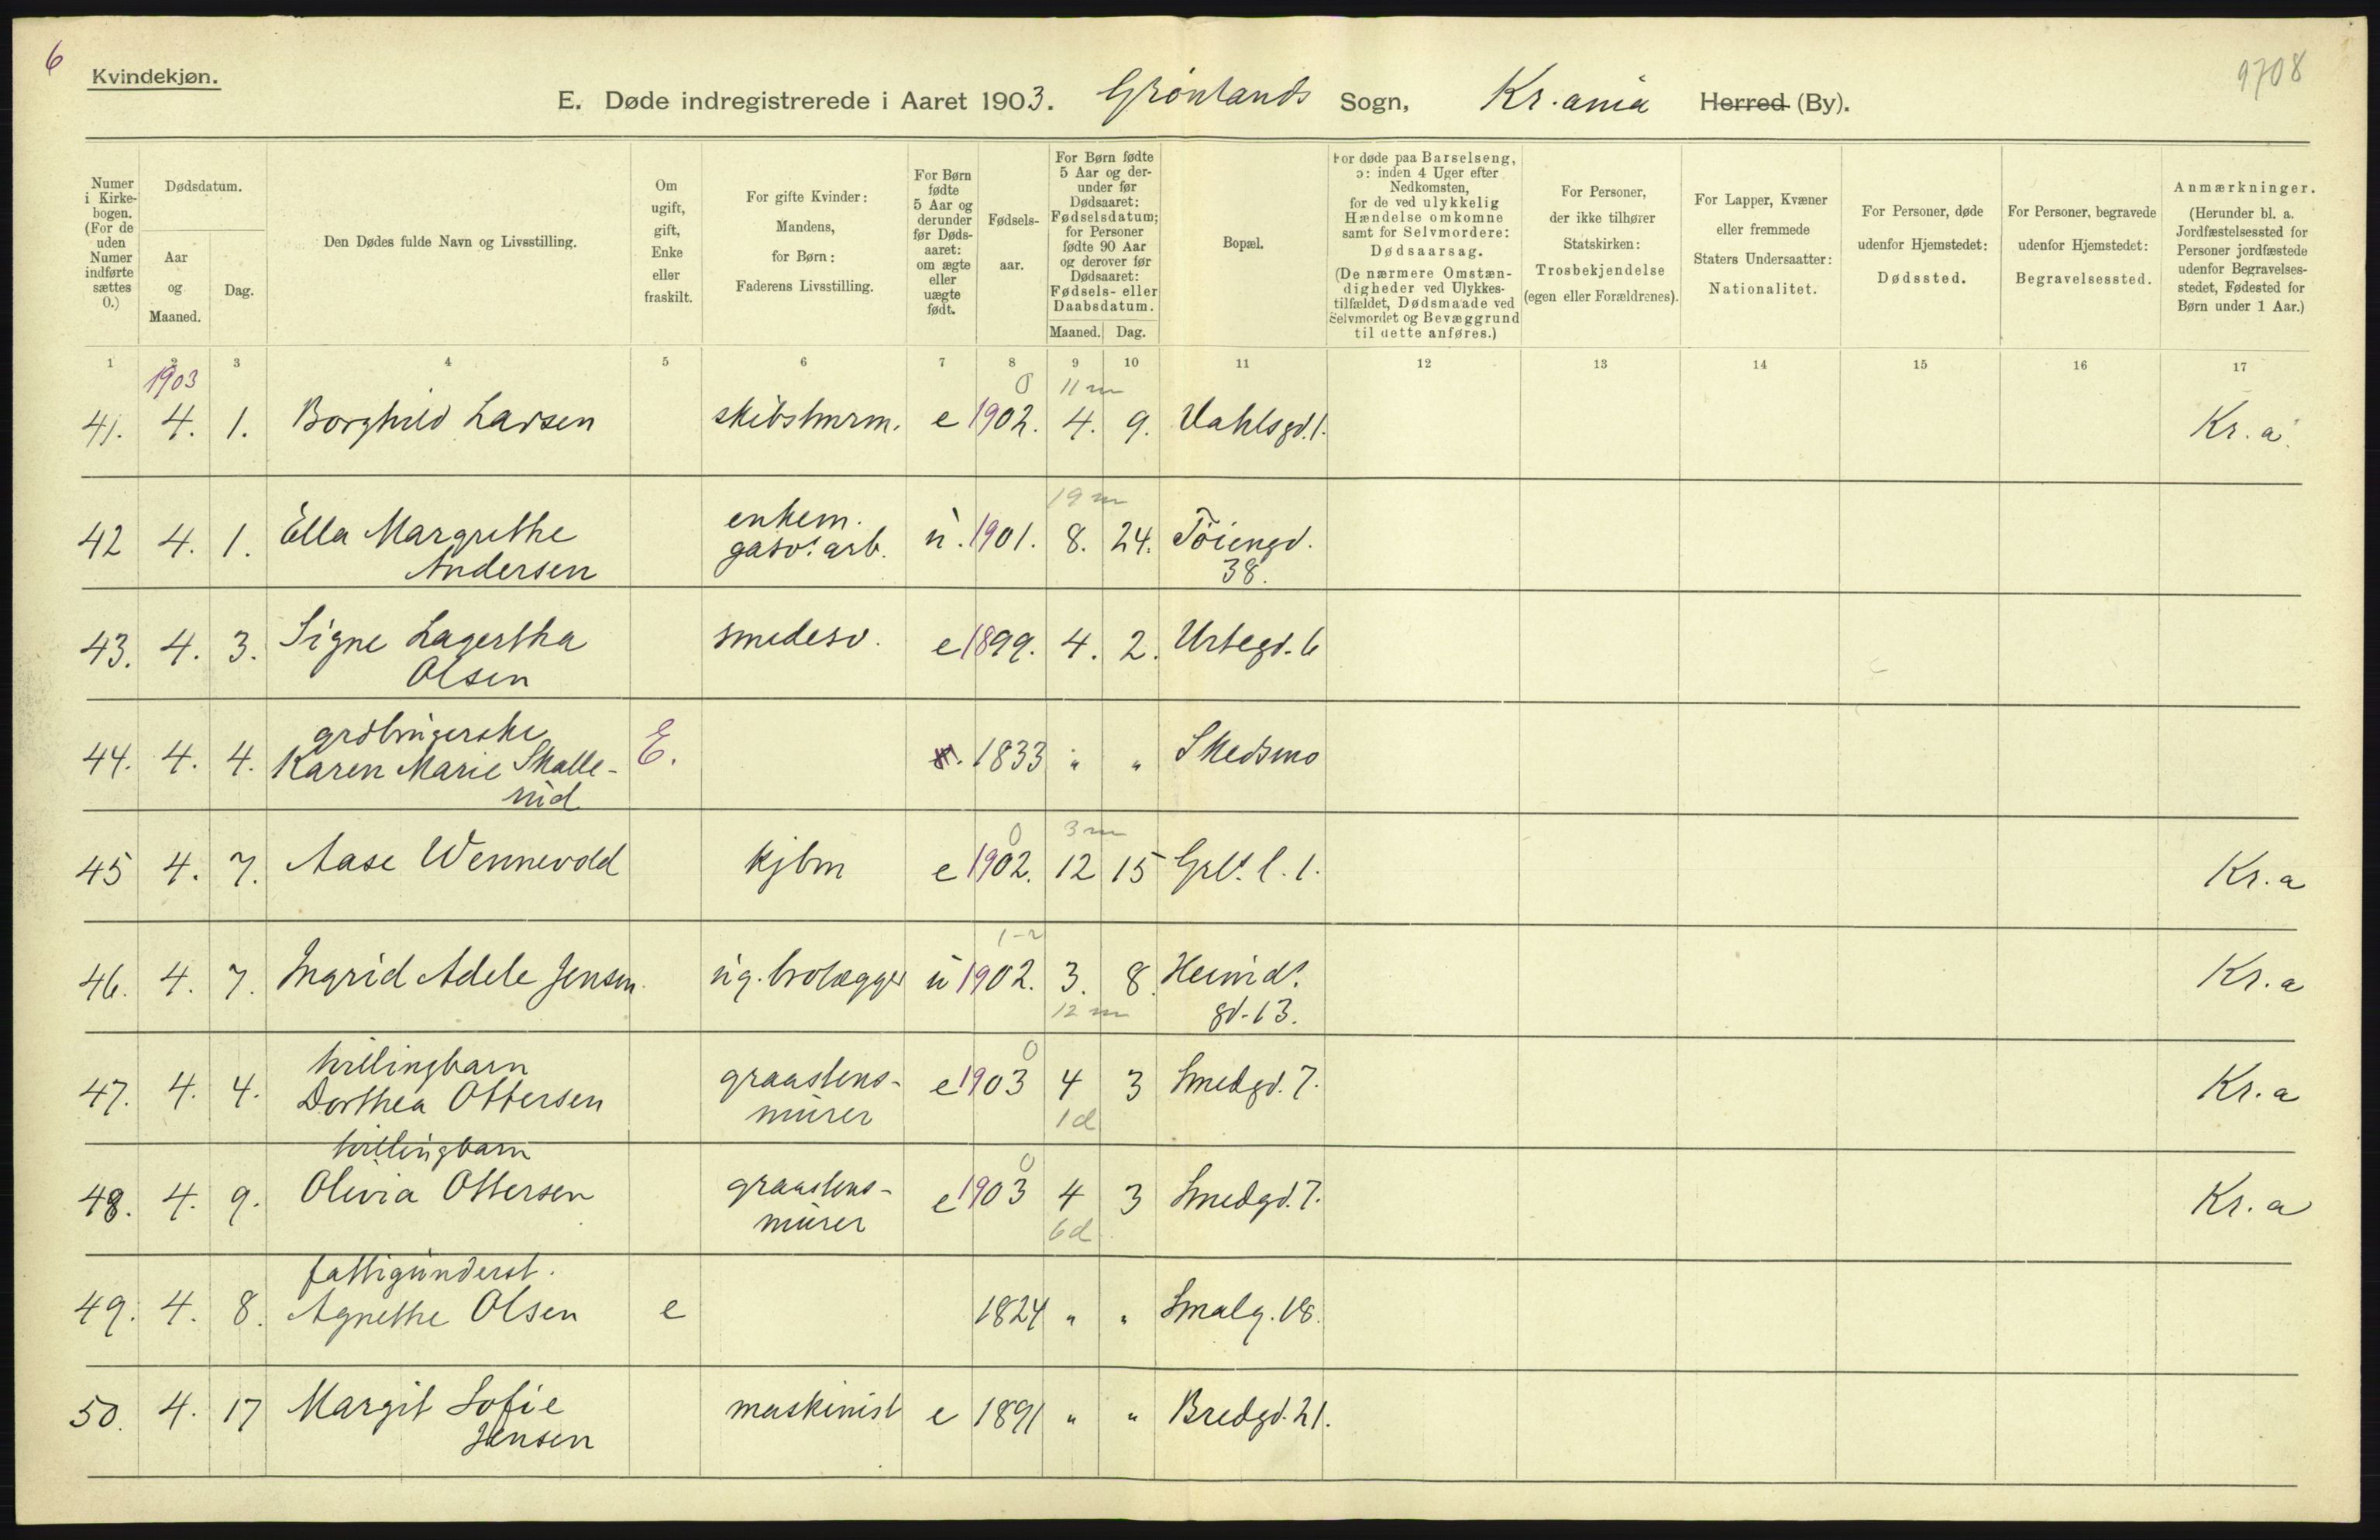 6
Kvindekjøn.
9708
E. Døde indregistrerede i Aaret 1903. Grønlands Sogn, Kr.ania Herred (By).
Numer i Kirkebogen. (For de uden Numer indførte sættes 0.)
Dødsdatum.
Aar og Maaned.
Dag.
Den Dødes fulde Navn og Livsstilling.
Om ugift, gift, Enke eller fraskilt.
For gifte Kvinder: Mandens, for Børn: Faderens Livsstilling.
For Børn fødte 5 Aar og derunder før Dødsaaret: om ægte eller uægte født.
Fødselsaar.
For Børn fødte 5 Aar og derunder før Dødsaaret: Fødselsdatum; for Personer fødte 90 Aar og derover før Dødsaaret: Fødsels- eller Daabsdatum.
Maaned. Dag.
Bopæl.
For døde paa Barselseng, ɔ: inden 4 Uger efter Nedkomsten, for de ved ulykkelig Hændelse omkomne samt for Selvmordere: Dødsaarsag. (De nærmere Omstændigheder ved Ulykkestilfældet, Dødsmaade ved Selvmordet og Bevæggrund til dette anføres.)
For Personer, der ikke tilhører Statskirken: Trosbekjendelse (egen eller Forældrenes).
For Lapper, Kvæner eller fremmede Staters Undersaatter: Nationalitet.
For Personer, døde udenfor Hjemstedet: Dødssted.
For Personer, begravede udenfor Hjemstedet: Begravelsessted.
Anmærkninger. (Herunder bl. a. Jordfæstelsessted for Personer jordfæstede udenfor Begravelsesstedet, Fødested for Børn under 1 Aar.)
1 2 3 4 5 6 7 8 9 10 11 12 13 14 15 16 17
1903 0 11 m
41. 4. 1. Borghild Larsen skibstmrm. e 1902. 4. 9. Vahlsgd. 1. Kr. a.
19 m
42 4. 1. Ella Margrethe Andersen enkem. gasv. arb. u. 1901. 8. 24. Tøiengd. 38.
43. 4. 3. Signe Lagertha Olsen smedesv. e 1899. 4. 2. Urtegd. 6
44. 4. 4. grdbrugerske Karen Marie Skallerud E. 1833 " " Skedsmo
0 3 m
45 4. 7. Aase Wennevold kjbm e 1902. 12 15 Grl. l. 1. Kr. a
46. 4. 7. Ingrid Adele Jensen. ug. brolægger u 1902. 3. 8. Heimds. gd. 13. Kr. a
12 m
0
47. 4. 4. trillingbarn Dorthea Ottersen graastensmurer e 1903 4 3 Smedgd. 7. Kr. a
1 d
0
48. 4. 9. trillingbarn Olivia Ottersen graastensmurer e 1903 4 3 Smedgd. 7. Kr. a
6 d
49. 4. 8. fattigunderst. Agnethe Olsen e 1824 " " Smalg. 18.
50. 4. 17 Margit Sofie Jensen maskinist e 1891 " " Bredgd. 21.